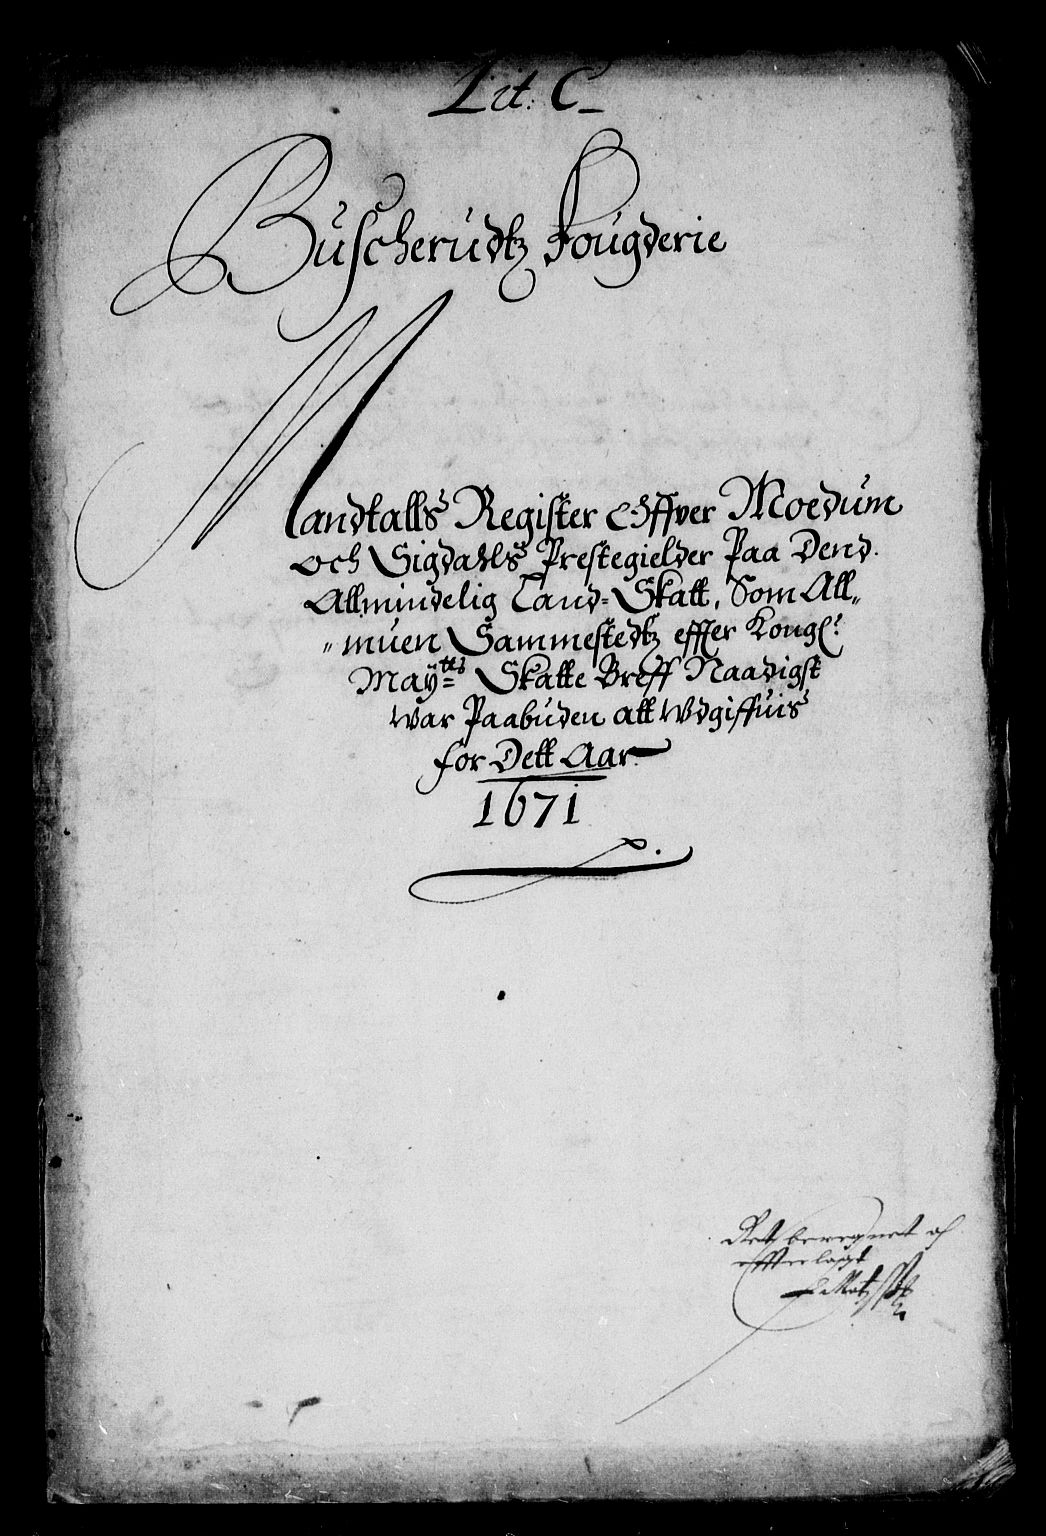 Lit: C
Buscherudtz Fougderie
Mandtalls Register Offver Moedum
och Sigdahls Prestegielder Paa Dend
Allmindelig Land-Skatt, Som All„
„muen Sammestedtz effter Kongl:
Maÿtts Skatte Breff Naadigst
war Paabuden att wdgiffuis
for Dett Aar
1671
Ret beregnet
effterlagt